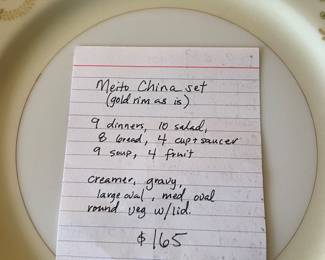 Meito China set
(gold rim as is)
9 dinners, 10 salad,
8 bread, 4 cup + saucer
9 soup, 4 fruit
creamer, gravy,
large oval, med oval
round veg w/lid.
$165